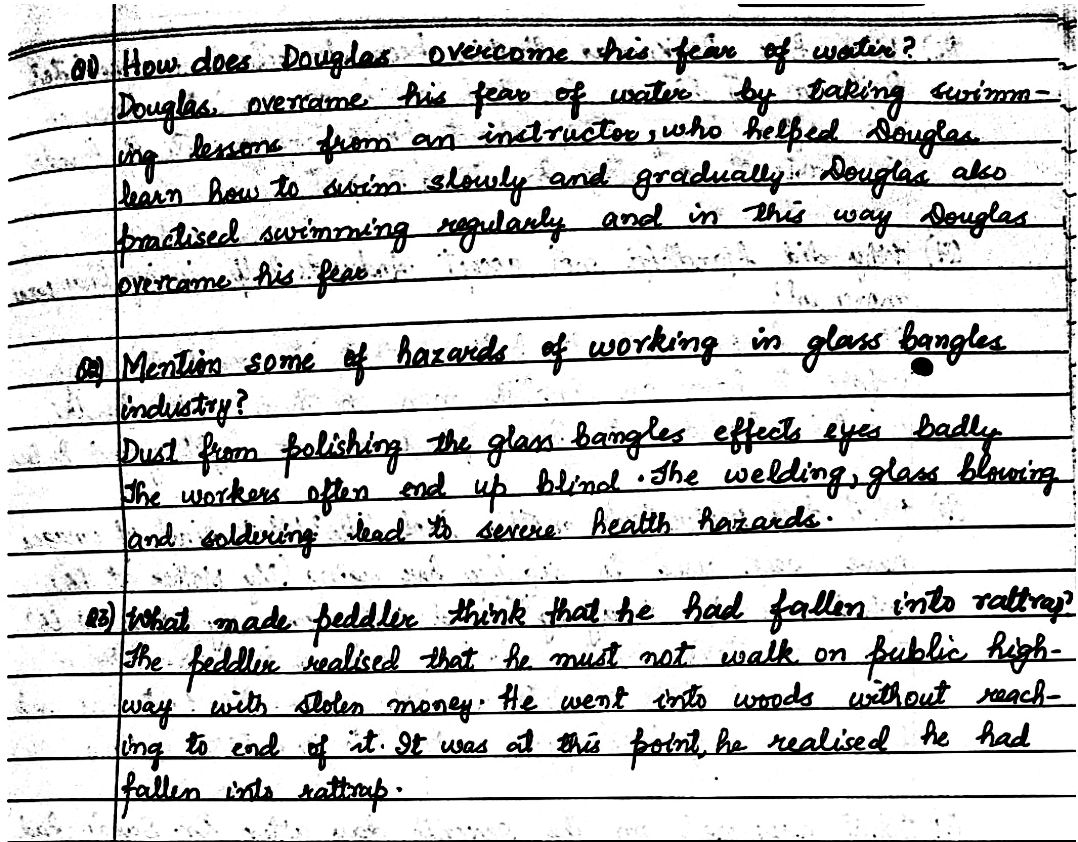 Q1) How does Douglas overcome his fear of water?
Douglas overcame his fear of water by taking swimm-
ing lessons from an instructor, who helped Douglas
learn how to swim slowly and gradually. Douglas also
practised swimming regularly and in this way Douglas
overcame his fear.
Q2) Mention some of hazards of working in glass bangles
industry?
Dust from polishing the glass bangles effects eyes badly
The workers often end up blind. The welding, glass blowing
and soldering lead to severe health hazards.
Q3) What made peddler think that he had fallen into rattrap?
The peddler realised that he must not walk on public high-
way with stolen money. He went into woods without reach-
ing to end of it. It was at this point, he realised he had
fallen into rattrap.